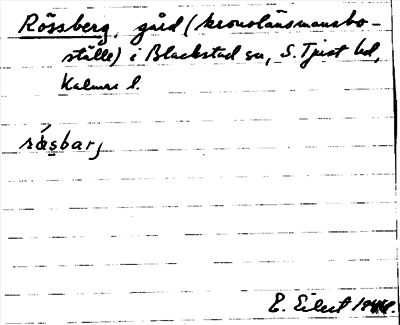 Rössberg, gård (kronolänsmansbo-
ställe) i Blackstad sn, S. Tjust hd,
Kalmar l.
E. Eilert